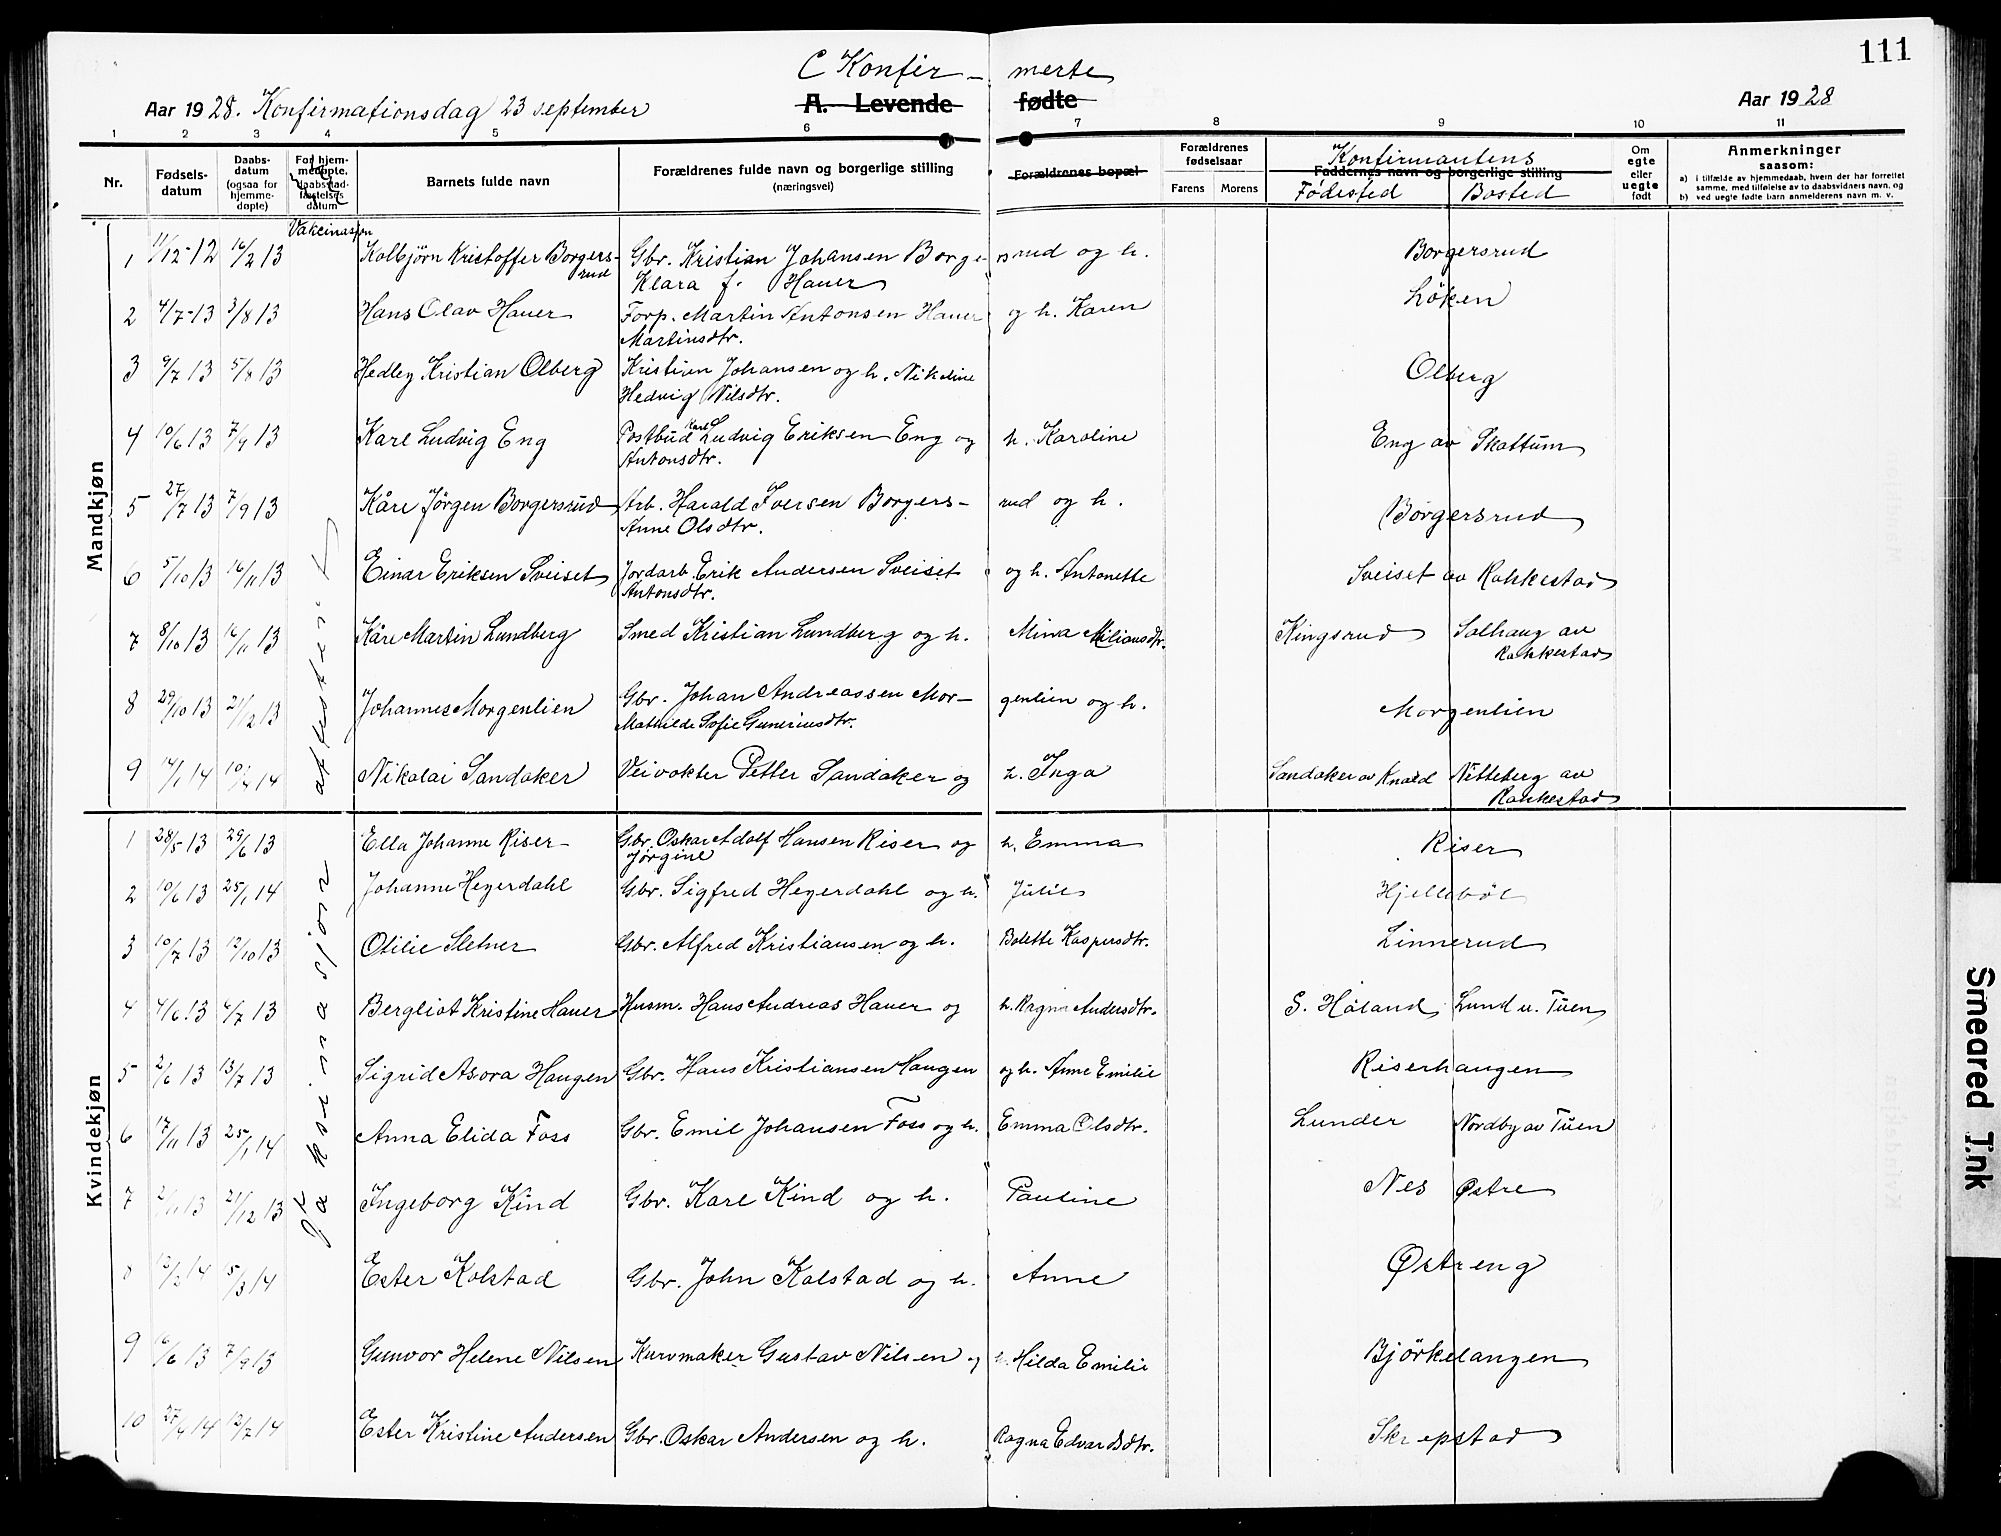 111
C Konfir- merte
Aar 1928. Konfirmationsdag 23 september A. Levende fødte Aar 1928
1 2 3 4 5 6 7 8 9 10 11
Nr. Fødsels-datum Daabs-datum (ogsaa for hjemme-døpte) For hjem-medøpte, daabsstad-fæstelses datum Barnets fulde navn Forældrenes fulde navn og borgerlige stilling (næringsvei) Forældrenes bopæl Forældrenes fødselsaar Farens Morens Konfirmantens Faddernes navn og borgerlige stilling Fødested Bosted Om egte eller uegte født Anmerkninger saasom:
a) i tilfælde av hjemmedaab, hvem der har forrettet samme, med tilføielse av to daabsvidners navn, og
b) ved uegte fødte barn anmelderens navn m. v.
Vakcinasjon
Mandkjøn
1 11/12-12 16/2 13 Kolbjörn Kristoffer Borgers-rud Gbr. Kristian Johansen Borge-rsrud og h. Borgersrud
Klara f. Hauer
2 4/7-13 3/8 13 Hans Olav Hauer Forp. Martin Antonsen Hauer og h. Karen Löken
Martinsdtr.
3 9/7 13 5/8 13 Hedley Kristian Olberg Kristian Johansen og h. Nikoline Olberg
Hedvig Nilsdtr.
4 10/6 13 7/9 13 Karl Ludvig Eng Postbud Karl Ludvig Eriksen Eng og h. Karoline Eng av Skattum
Antonsdtr.
5 27/7 13 7/9 13 Kåre Jörgen Borgersrud Arb. Harald Iversen Borgers-rud og h. Borgersrud
Anne Olsdtr.
6 5/10 13 16/11 13 Einar Eriksen Sveiset Jordarb. Erik Andersen Sveiset og h. Antonette Sveiset av Rakkestad
Antonsdtr.
7 8/10 13 16/11 13 Kåre Martin Lundberg Smed Kristian Lundberg og h. Mina Miliansdtr. Kingsrud Solhaug av
Rakkestad
8 29/10 13 21/12 13 Johannes Morgenlien Gbr. Johan Andreassen Mor-genlien og h. Morgenlien
Mathilde Sofie Gunerinsdtr.
9 14/1 14 10/4 14 Nikolai Sandaker Veivokter Petter Sandaker og h. Inga Sandaker av Knold Nitteberg av
Rakkestad
Kvindekjøn
Vaksinasjons attester
1 28/5 13 29/6 13 Ella Johanne Riser Gbr. Oskar Adolf Hansen Riser og h. Emma Riser
Jörgine
2 10/6 13 25/1 14 Johanne Hegerdahl Gbr. Sigfred Hegerdahl og h. Julie Hjelleböl
3 10/7 13 12/10 13 Otilie Sletner Gbr. Alfred Kristiansen og h. Bolette Kaspersdtr. Linnerud
4 4/6 13 6/7 13 Bergliot Kristine Hauer Husm. Hans Andreas Hauer og h. Ragna Andersdtr. S. Höland Lund u. Tuen
5 2/6 13 13/7 13 Sigrid Asora Haugen Gbr. Hans Kristiansen Haugen og h. Anne Emilie Riserhaugen
6 17/11 13 25/1 14 Anna Elida Foss Gbr. Emil Johansen Foss og h. Emma Olsdtr. Lunder Nordby av Tuen
7 2/11 13 21/12 13 Ingeborg Kind Gbr. Karl Kind og h. Pauline Nes Østre
8 12/2 14 5/3 14 Ester Kolstad Gbr. John Kolstad og h. Anne Østreng
9 16/6 13 7/9 13 Gunvor Helene Nilsen Kurvmaker Gustav Nilsen og h. Hilda Emilie Björkelangen
10 27/4 14 12/7 14 Ester Kristine Andersen Gbr. Oskar Andersen og h. Ragna Edvardsdtr. Skrepstad
Smeared Ink